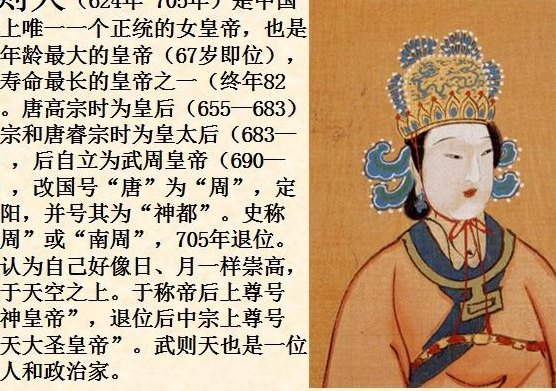 则天（624年-705年）是中国
上唯一一个正统的女皇帝，也是
年龄最大的皇帝（67岁即位），
寿命最长的皇帝之一（终年82
。唐高宗时为皇后（655—683）
宗和唐睿宗时为皇太后（683—
，后自立为武周皇帝（690—
，改国号“唐”为“周”，定
阳，并号其为“神都”。史称
周”或“南周”，705年退位。
认为自己好像日、月一样崇高，
于天空之上。于称帝后上尊号
神皇帝”，退位后中宗上尊号
天大圣皇帝”。武则天也是一位
人和政治家。